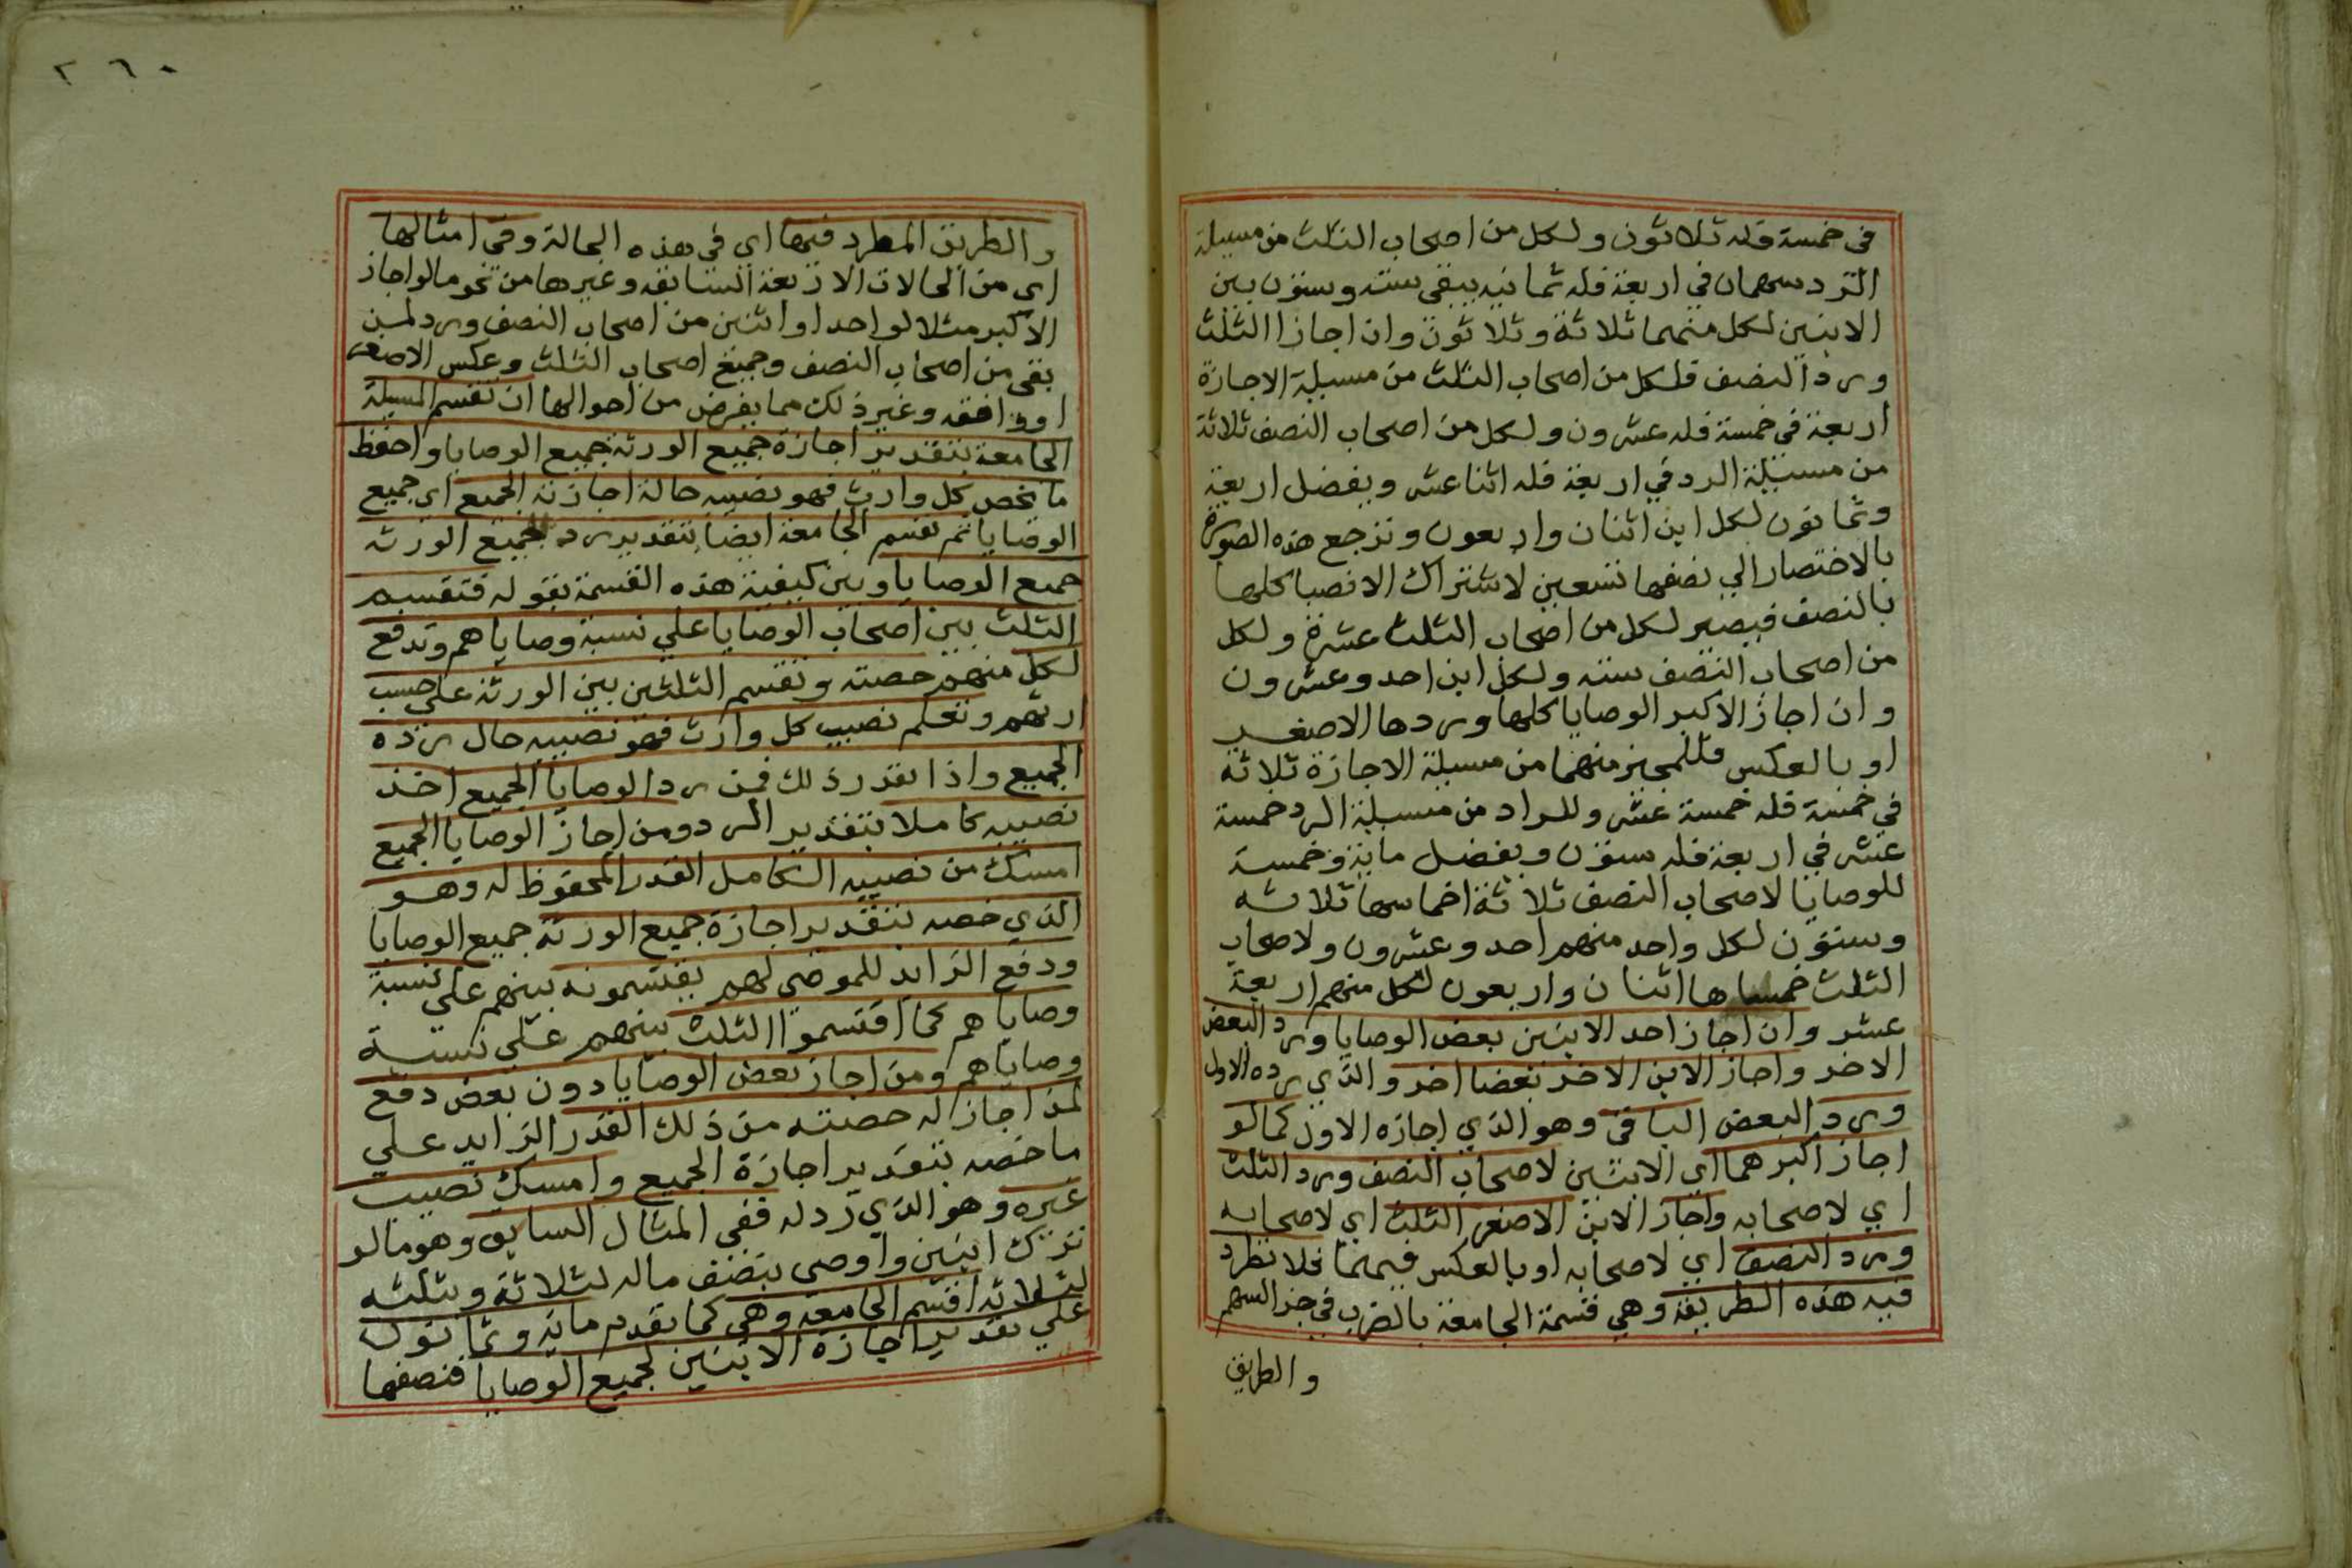 في خمسة فله ثلاثون ولكل من اصحاب الثلث من مسيلة
الرد سهمان في اربعة فله ثمانيه يبقى سته وستون بين
الابنين لكل منهما ثلاثة وثلاثون وان اجازا الثلث
وردا النصف فلكل من اصحاب الثلث من مسيلة الاجازة
اربعة في خمسة فله عشرون ولكل من اصحاب النصف ثلاثة
من مسئلة الرد في اربعة فله اثنا عشر ويفضل اربعة
وثمانون لكل ابن اثنان واربعون وترجع هذه الصورة
بالاختصار الي نصفها تسعين لاشتراك الانصبا كلها
بالنصف فيصير لكل من اصحاب الثلث عشرة ولكل
من اصحاب النصف سته ولكل ابن احد وعشرون
وان اجاز الاكبر الوصايا كلها وردها الاصغر
او بالعكس فللمجيز منهما من مسيلة الاجازة ثلاثة
في خمسة فله خمسة عشر وللراد من مسيلة الرد خمسة
عشر في اربعة فله ستون ويفضل ماية وخمسة
للوصايا لاصحاب النصف ثلاثة اخماسها ثلاثه
وستون لكل واحد منهم احد وعشرون ولاصحاب
الثلث خمساها اثنان واربعون لكل منهم اربعة
عشر وان اجاز احد الابنين بعض الوصايا ورد البعض
الاخر واجاز الابن الاخر بعضا اخر والذي رده الاول
ورد البعض الباقي وهو الذي اجازه الاول كما لو
اجاز اكبرهما اي الابنين لاصحاب النصف ورد الثلث
اي لاصحابه واجاز الابن الاصغر الثلث اي لاصحابه
ورد النصف اي لاصحابه او بالعكس فيهما فلا تطرد
فيه هذه الطريقة وهي قسمة الجامعة بالضرب في جز السهم
والطريق
٢٦٠
والطريق المطرد فيها اي في هذه الحالة وفي امثالها
اي من الحالات الاربعة السابقه وغيرها من نحو ما لو اجاز
الاكبر مثلا لواحد او اثنين من اصحاب النصف ورد لمن
بقي من اصحاب النصف وجميع اصحاب الثلث وعكس الاصغر
او وافقه وغير ذلك مما يفرض من احوالها ان تقسم المسيلة
الجامعة بتقدير اجازة جميع الورثة جميع الوصايا واحفظ
ما يخص كل وارث فهو نصيبه حالة اجازته الجميع اي جميع
الوصايا ثم تقسم الجامعة ايضا بتقدير رد جميع الورثه
جميع الوصايا وبين كيفية هذه القسمة بقوله فتقسم
الثلث بين اصحاب الوصايا علي نسبة وصاياهم وتدفع
لكل منهم حصته وتقسم الثلثين بين الورثة علي حسب
ارثهم وتعلم نصيب كل وارث فهو نصيبه حال رده
الجميع واذا تقدر ذلك فمن رد الوصايا الجميع اخذ
نصيبه كاملا بتقدير الرد ومن اجاز الوصايا الجميع
امسك من نصيبه الكامل القدر المحفوظ له وهو
الذي خصه بتقدير اجازة جميع الورثة جميع الوصايا
ودفع الزايد للموصى لهم يقتسمونه بينهم علي نسبة
وصاياهم كما اقتسموا الثلث بينهم علي نسبة
وصاياهم ومن اجاز بعض الوصايا دون بعض دفع
لمن اجاز له حصته من ذلك القدر الزايد علي
ما خصه بتقدير اجازة الجميع وامسك نصيب
غيره وهو الذي رد له ففي المثال السابق وهو ما لو
ترك ابنين واوصى بنصف ماله لثلاثة وبثلثه
لثلاثه اقسم الجامعه وهي كما تقدم مايه وثمانون
علي تقدير اجازة الابنين لجميع الوصايا فنصفها